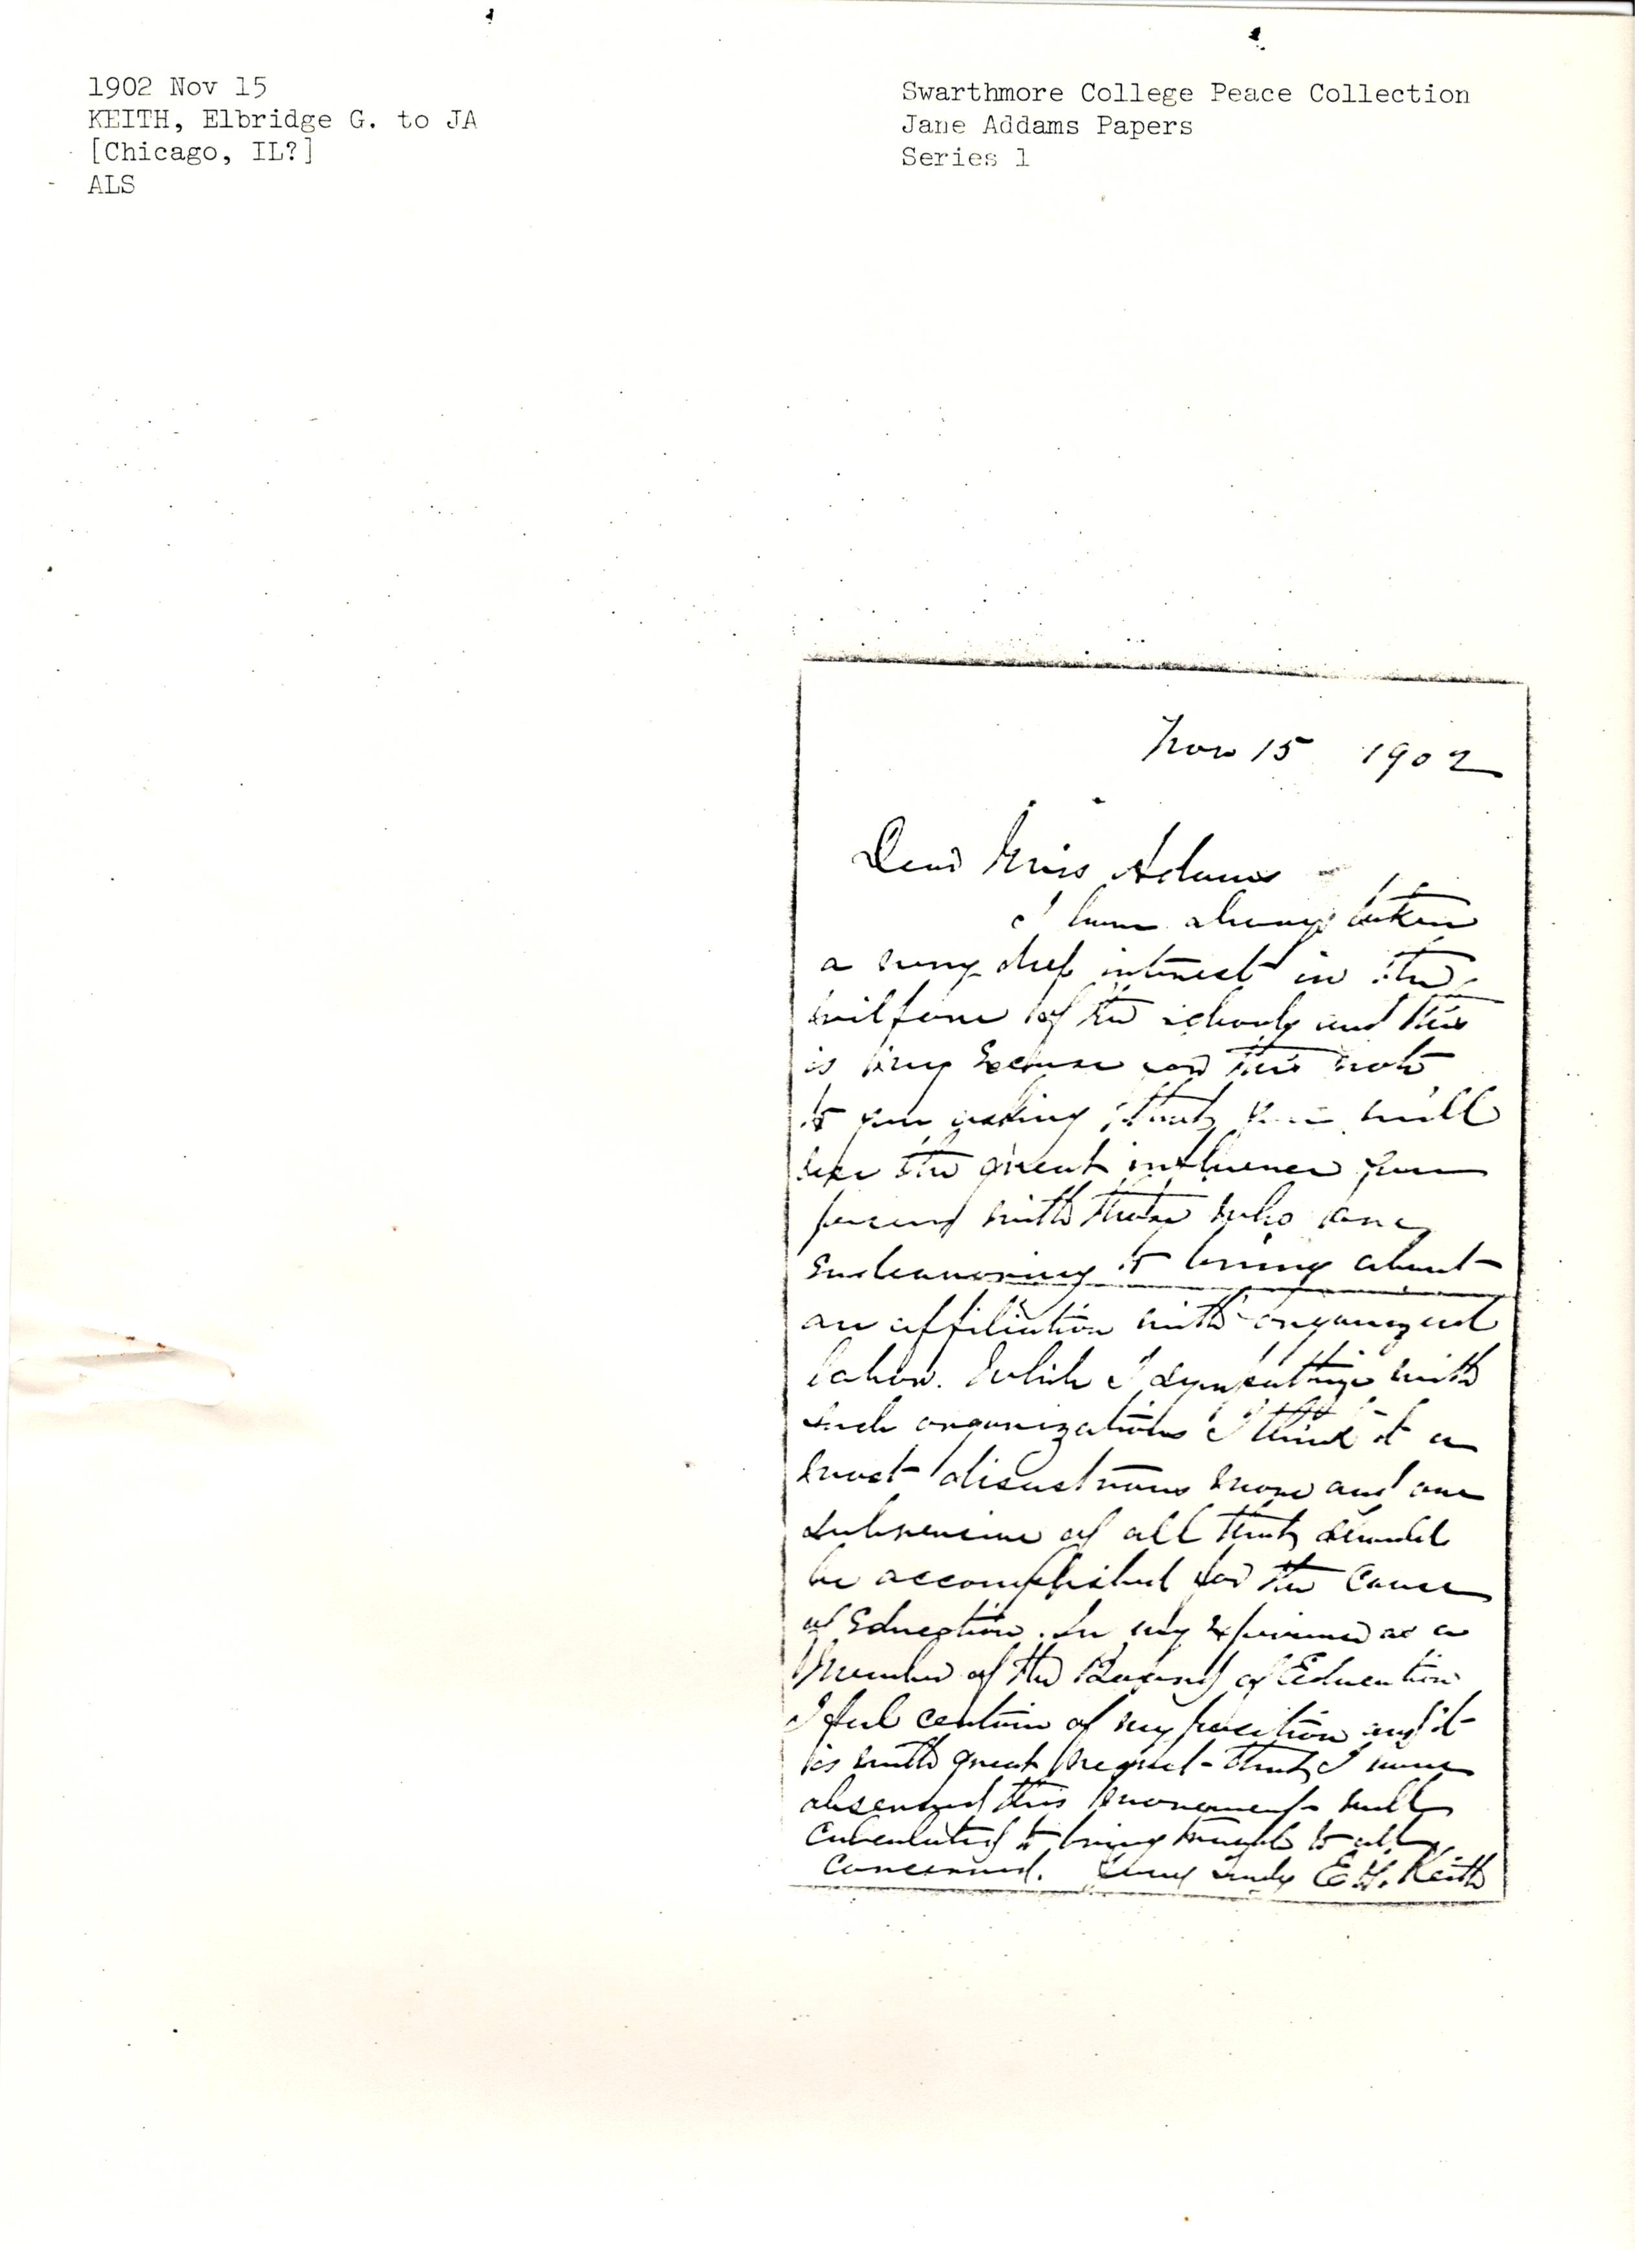 1902 Nov 15
KEITH, Elbridge G. to JA
[Chicago, IL?]
ALS
Swarthmore College Peace Collection
Jane Addams Papers
Series 1
Nov 15 1902
Dear Miss Adams
I have always taken
a very deep interest in the
welfare of the schools and this
is my excuse for this note
to you asking that you will
use the great influence you
possess with those who are
endeavoring to bring about
an affiliation with organized
labor. While I sympathize with
such organizations I think it a
most disastrous move and one
subversive of all that should
be accomplished for the cause
of Education. In my experience as a
Member of the Board of Education
I feel certain of my position and it
is with great regret that I have
observed this movement well
calculated to bring trouble to all
concerned. Very truly E G. Keith